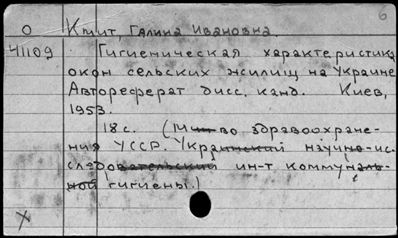 6
О Кмит, Галина Ивановна.
41109 Гигиеническая характеристика
окон сельских жилищ на Украине
Автореферат дисс. канд. Киев,
1953.
18 с. (Мин-во здравоохране-
ния УССР. Украинский научно-ис.
следовательский ин-т коммуналь-
ной гигиены.)
X